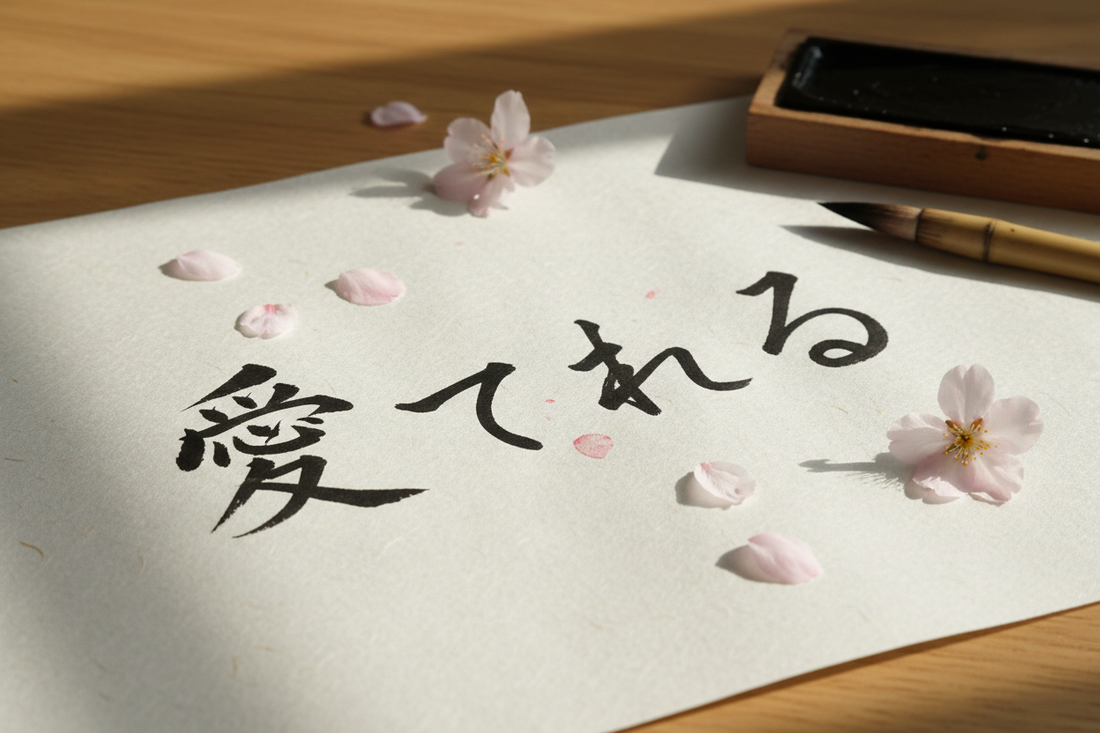 愛てれる